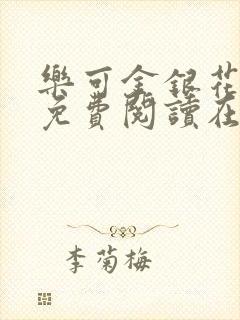 樂可金銀花
免費閱讀在
李菊梅